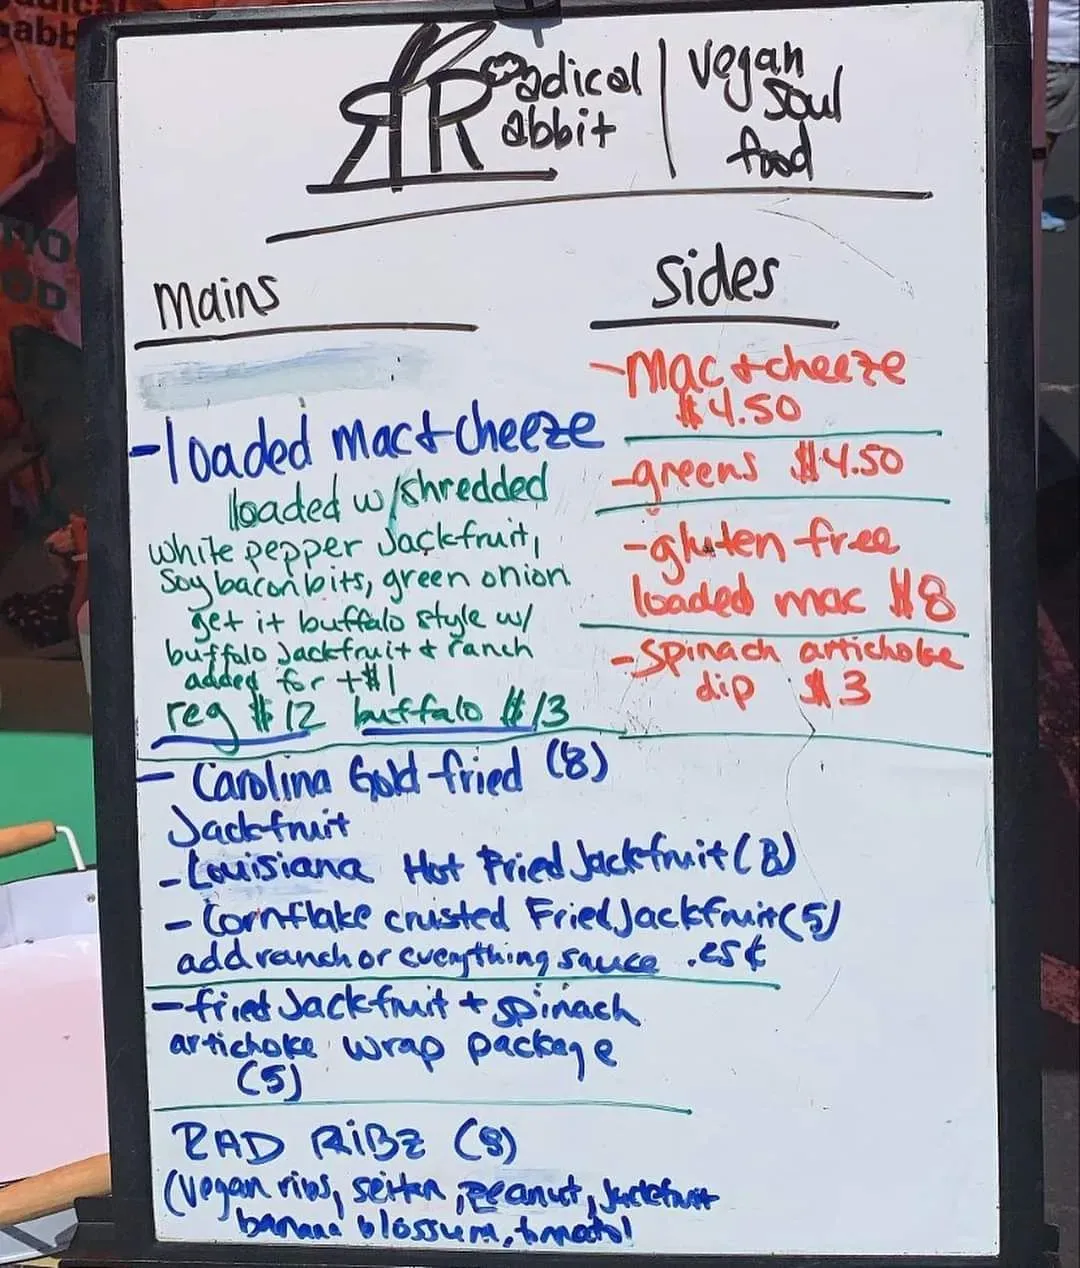 Radical
Rabbit
vegan
soul
food
mains
-loaded mac+cheeze
loaded w/shredded
white pepper Jackfruit,
Soy bacon bits, green onion
get it buffalo style w/
buffalo Jackfruit + ranch
added for +$1
reg $12 buffalo $13
- Carolina Gold fried (8)
Jackfruit
-Louisiana Hot Fried Jackfruit (8)
- Cornflake crusted Fried Jackfruit (5)
add ranch or everything sauce
-fried Jackfruit + spinach
artichoke wrap package
(5)
RAD RiBZ (8)
(vegan ribs, seitan, peanut, Jackfruit
banana blossum,
sides
-Mac+cheeze
$4.50
-greens $4.50
-gluten free
loaded mac $8
-spinach artichoke
dip $3